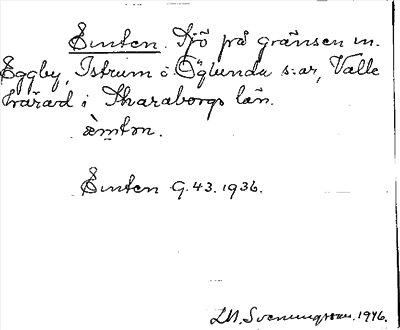 Emten. Sjö på gränsen m.
Eggby, Istrum o. Öglunda s:ar, Valle
härad i Skaraborgs län.
æ̀mtən.
Emten G.43. 1936.
LM. Svenungsson. 1946.